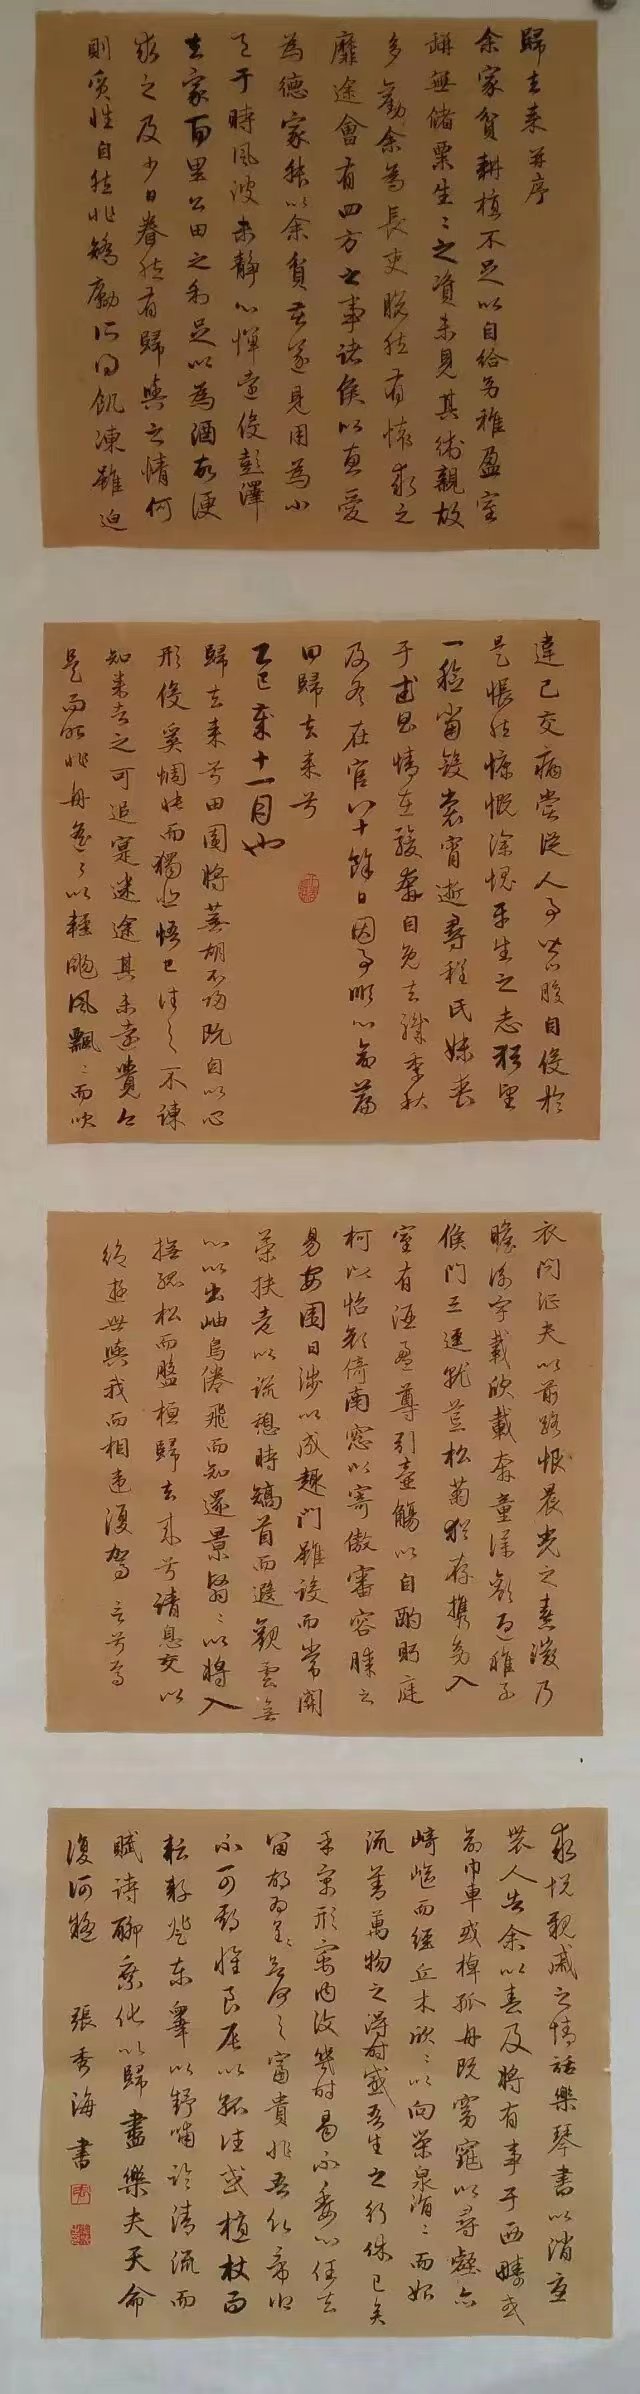 歸去来并序
余家貧耕植不足以自給幼稚盈室
缾無儲粟生〻之資未見其術親故
多勸余為長吏脱然有懷求之
靡途會有四方之事諸侯以惠愛
為德家叔以余貧苦遂見用為小
邑于時風波未静心憚遠役彭澤
去家百里公田之利足以為酒故便
求之及少日眷然有歸與之情何
則質性自然非矯勵所得飢凍雖迫
違己交病嘗從人事皆口腹自役於
是悵然慷慨深愧平生之志猶望
一稔當斂裳宵逝尋程氏妹喪
于武昌情在駿奔自免去職季秋
及冬在官八十餘日因事順心命篇
曰歸去来兮
乙巳歲十一月也
歸去来兮田園將蕪胡不歸既自以心
形役奚惆悵而獨悲悟已往之不諫
知来者之可追寔迷途其未遠覺今
是而昨非舟遥〻以輕颺風飄〻而吹
衣問征夫以前路恨晨光之熹微乃
瞻衡宇載欣載奔童僕歡迎稚子
候門三逕就荒松菊猶存攜幼入
室有酒盈尊引壺觴以自酌眄庭
柯以怡顔倚南窓以寄傲審容膝之
易安園日涉以成趣門雖設而常關
策扶老以流憩時矯首而遐觀雲無
心以出岫鳥倦飛而知還景翳〻以將入
撫孤松而盤桓歸去来兮請息交以
絶遊世與我而相違復駕言兮焉
求悦親戚之情話樂琴書以消憂
農人告余以春及將有事于西疇或
命巾車或棹孤舟既窈窕以尋壑亦
崎嶇而經丘木欣〻以向榮泉涓〻而始
流善萬物之得時感吾生之行休已矣
乎寓形宇内復幾時曷不委心任去
留胡為遑〻欲何之富貴非吾願帝鄉
不可期懷良辰以孤往或植杖而
耘耔登東皋以舒嘯臨清流而
賦詩聊乘化以歸盡樂夫天命
復何疑　張秀海書